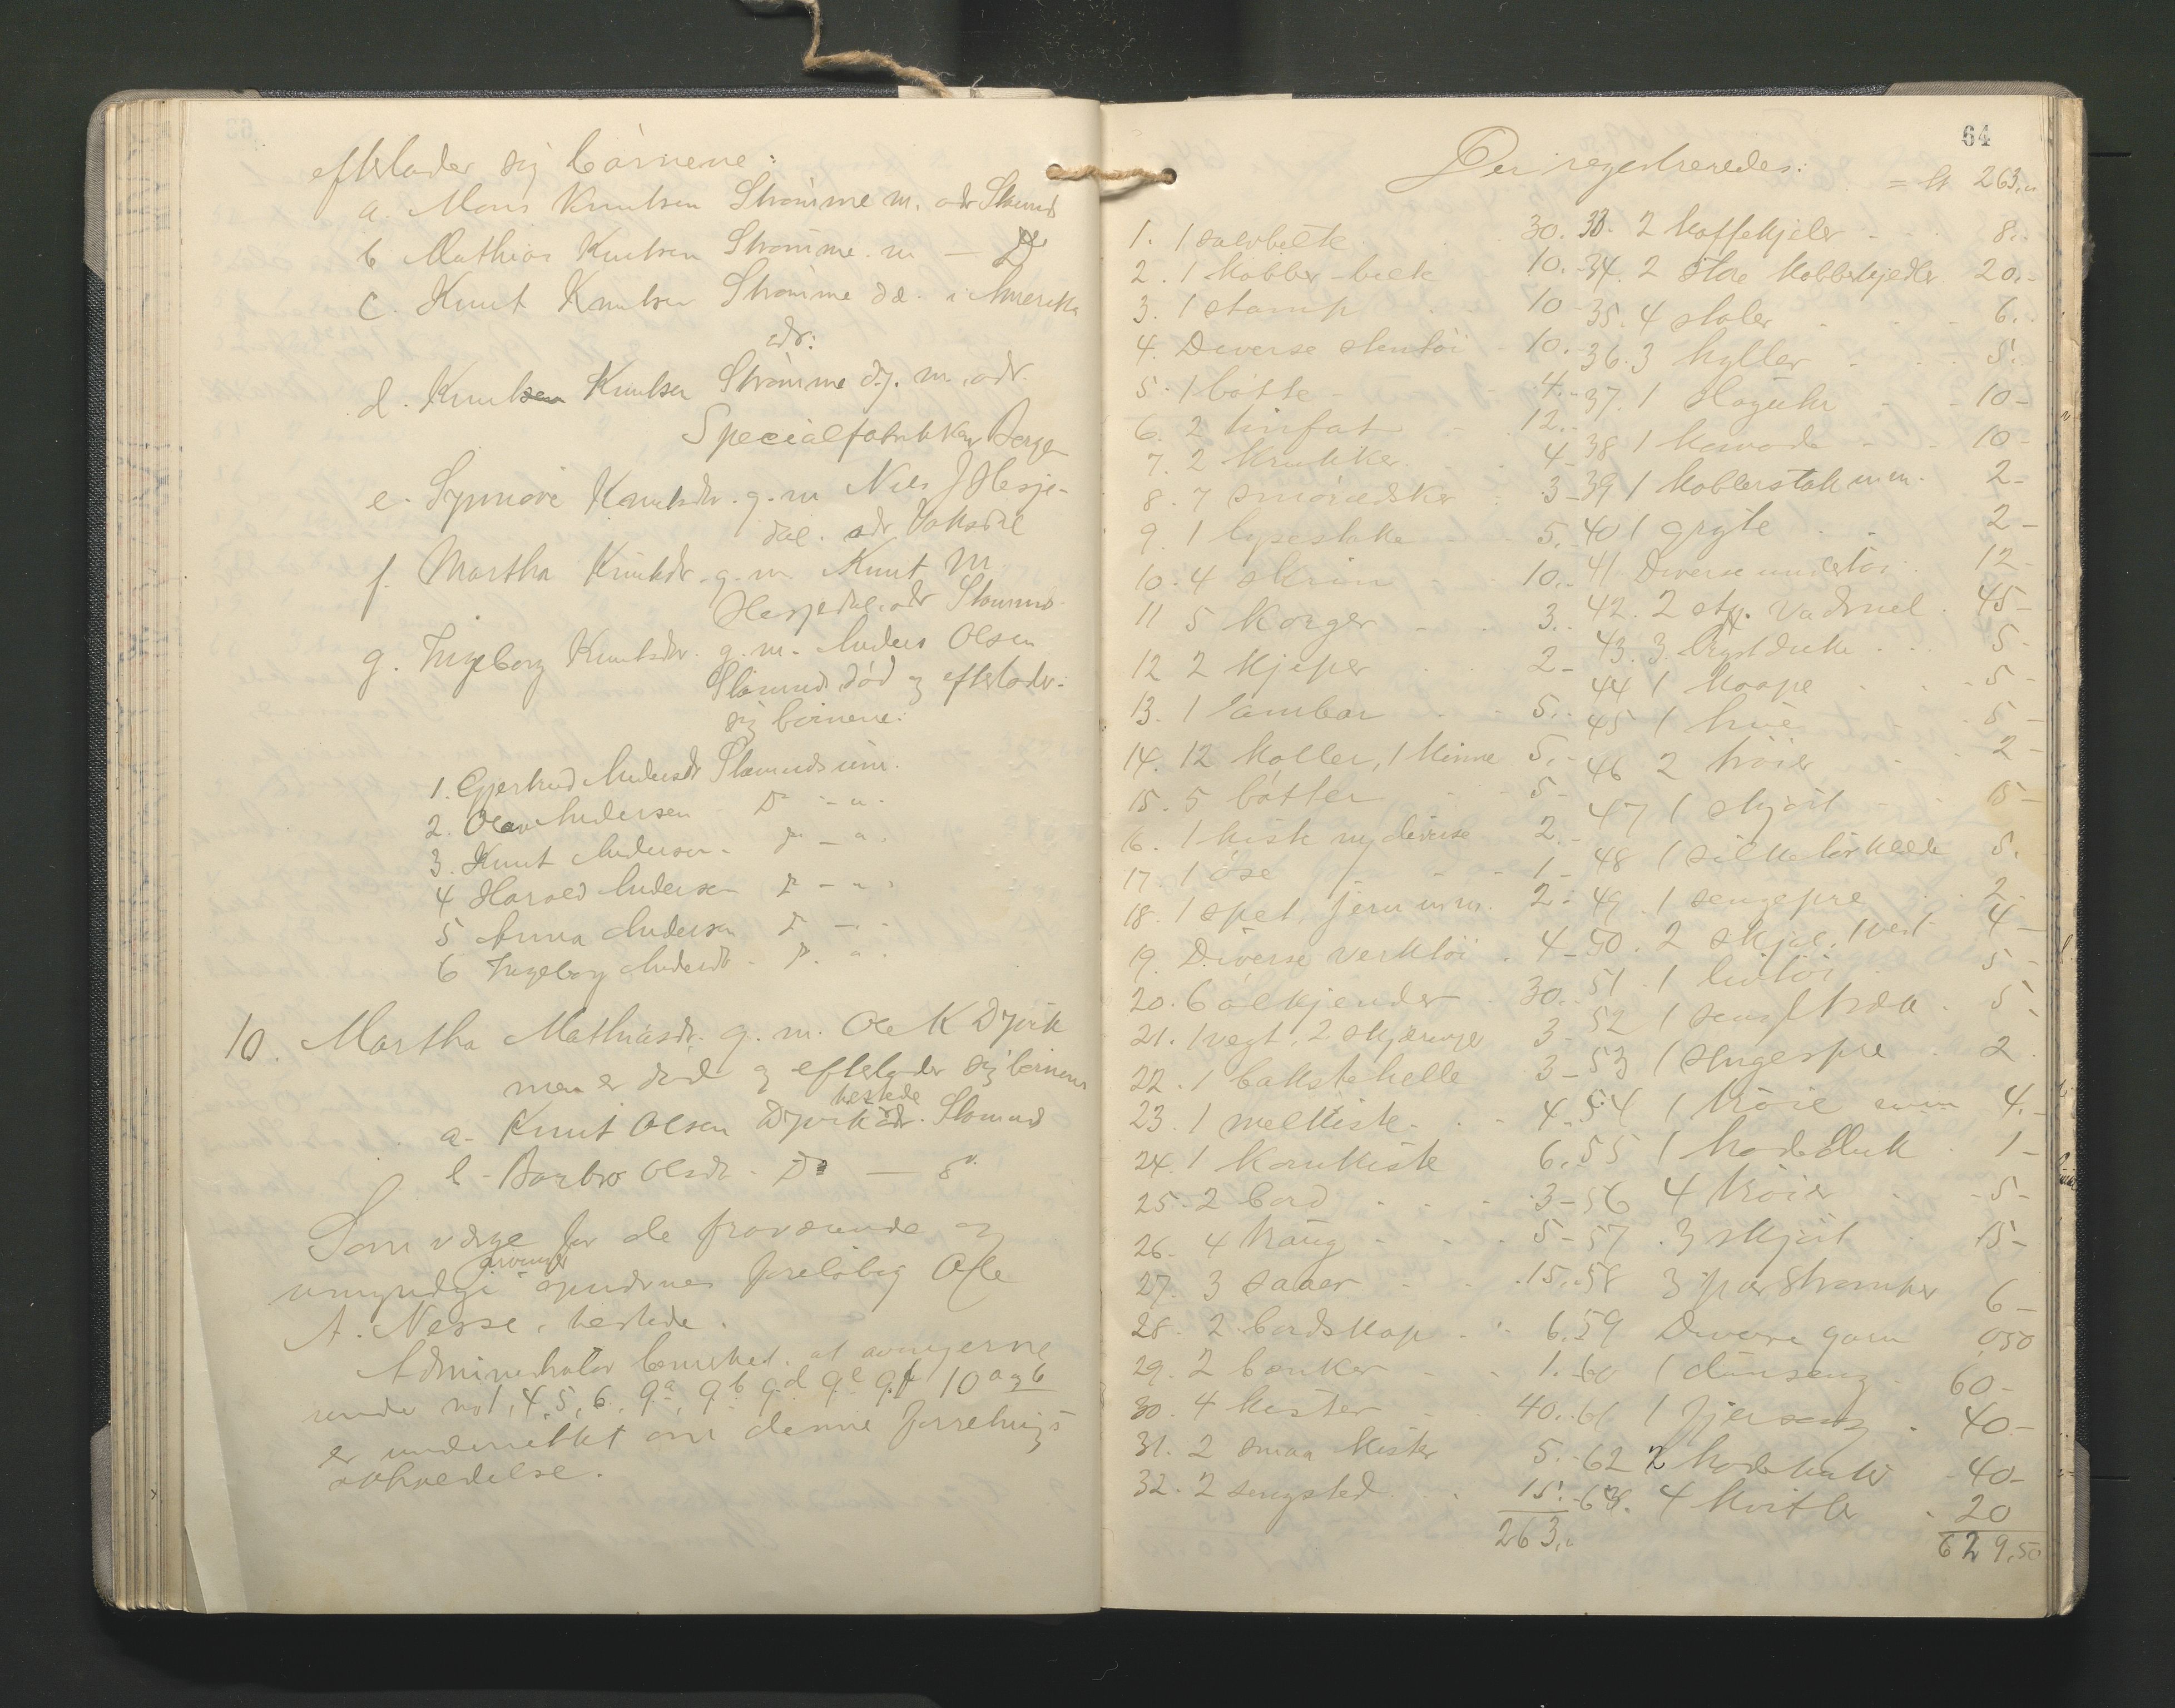 efterlader sig börnene:
a. Mons Knutsen Strömme m. adr Stamnes
b Mathias Knutsen Strömme. m — Do
c. Knut Knutsen Strömme dd. i Amerika
adr:
d. Knut Knutsen Strömme d.y. m. adr.
Specialfabrikken Bergen
e. Synnøve Knutsdr. g. m Nils J Hesje-
dal. adr Vaksdal
f. Martha Knutsdr. g. m. Knut M.
Hesjedal. adr Stamnes
g. Ingeborg Knutsdr. g. m. Anders Olsen
Stamnes död og efterlader
sig börnene:
1. Gjertrud Andersdr Stamnes um.
2. Olav Andersen Do - " -
3. Knut Andersen - Do - " -
4 Harald Andersen Do - " -
5 Anna Andersen Do - " -
6 Ingeborg Andersdr. Do " -
10. Martha Mathiasdr. g. m. Ole K Dyvik
men er död og efterlader sig börnene
a- Knut Olsen Dyvik adr. Stamnes
b - Barbro Olsdr - Do —
Som værge for de fraværende og
umyndige arvinger opnævnes foreløbig Ole
A. Nesse, hersteds.
Administrator bemerket at arvingerne
under no 1, 4, 5, 6, 9a, 9b 9d 9e 9f 10 a og b
er underrettet om denne forretnings
avholdelse.
64
Der registreredes:
= kr 263.,,
1. 1 sølvbelte 30.
2. 1 kobber-belte 10.
3. 1 stamp 10
4. Diverse stentöi 10.
5. 1 bötte 4.
6. 2 tinfat 12.
7. 2 krukker 4
8. 7 smöræsker 3
9. 1 lysestake 5.
10. 4 skrin 10.
11 5 korger 3.
12 2 kjeper 2
13. 1 lambar 5.
14. 12 koller, 1 kinne 5.
15. 5 bötter 5
16. 1 kiste m/ diverse 2.
17. 1 öse 1
18. 1 spet, jern m.m. 2
19. Diverse verktöi 4
20. 6 ölkjender 30.
21. 1 vegt, 2 skjæringer 3
22. 1 bakstehelle 3
23. 1 melkiste 4
24. 1 kornkiste 6.
25. 2 bord 3
26. 4 traug 5
27. 3 saaer 15.
28. 2 bordskap 6.
29. 2 benker 1.
30. 4 kister 40.
31. 2 smaa kister 5.
32. 2 sengsted 15.
263.,,
33. 2 kaffekjeler 8.
34. 2 store kobberkjedler 20.
35. 4 stoler 6.
36. 3 hyller 5.
37. 1 slaguhr 10
38 1 komode 10
39 1 koblerstak m.m. 2
40 1 gryte 2
41. Diverse undertöi 12
42. 2 sty. vadmel 45
43. 3 brystduke 5
44 1 kaape 5
45 1 hue 5
46 2 tröier 2
47 1 skjört 15
48 1 silketörklede 5.
49. 1 sengepre 2
50. 2 skjæl, 1 vest 4
51. 1 livtöi 5
52 1 sengtræk 5
53 1 sengespre 2
54 1 tröie m.m 4.
55 1 hodeduk 1
56 4 tröier 5
57. 3 skjört 15
58 3 par strömper 6
59 Diverse garn 0,50
60 1 dunseng 60
61 1 fjerseng 40
62 2 hodeputer 40
63. 4 kvitler 20
629,50